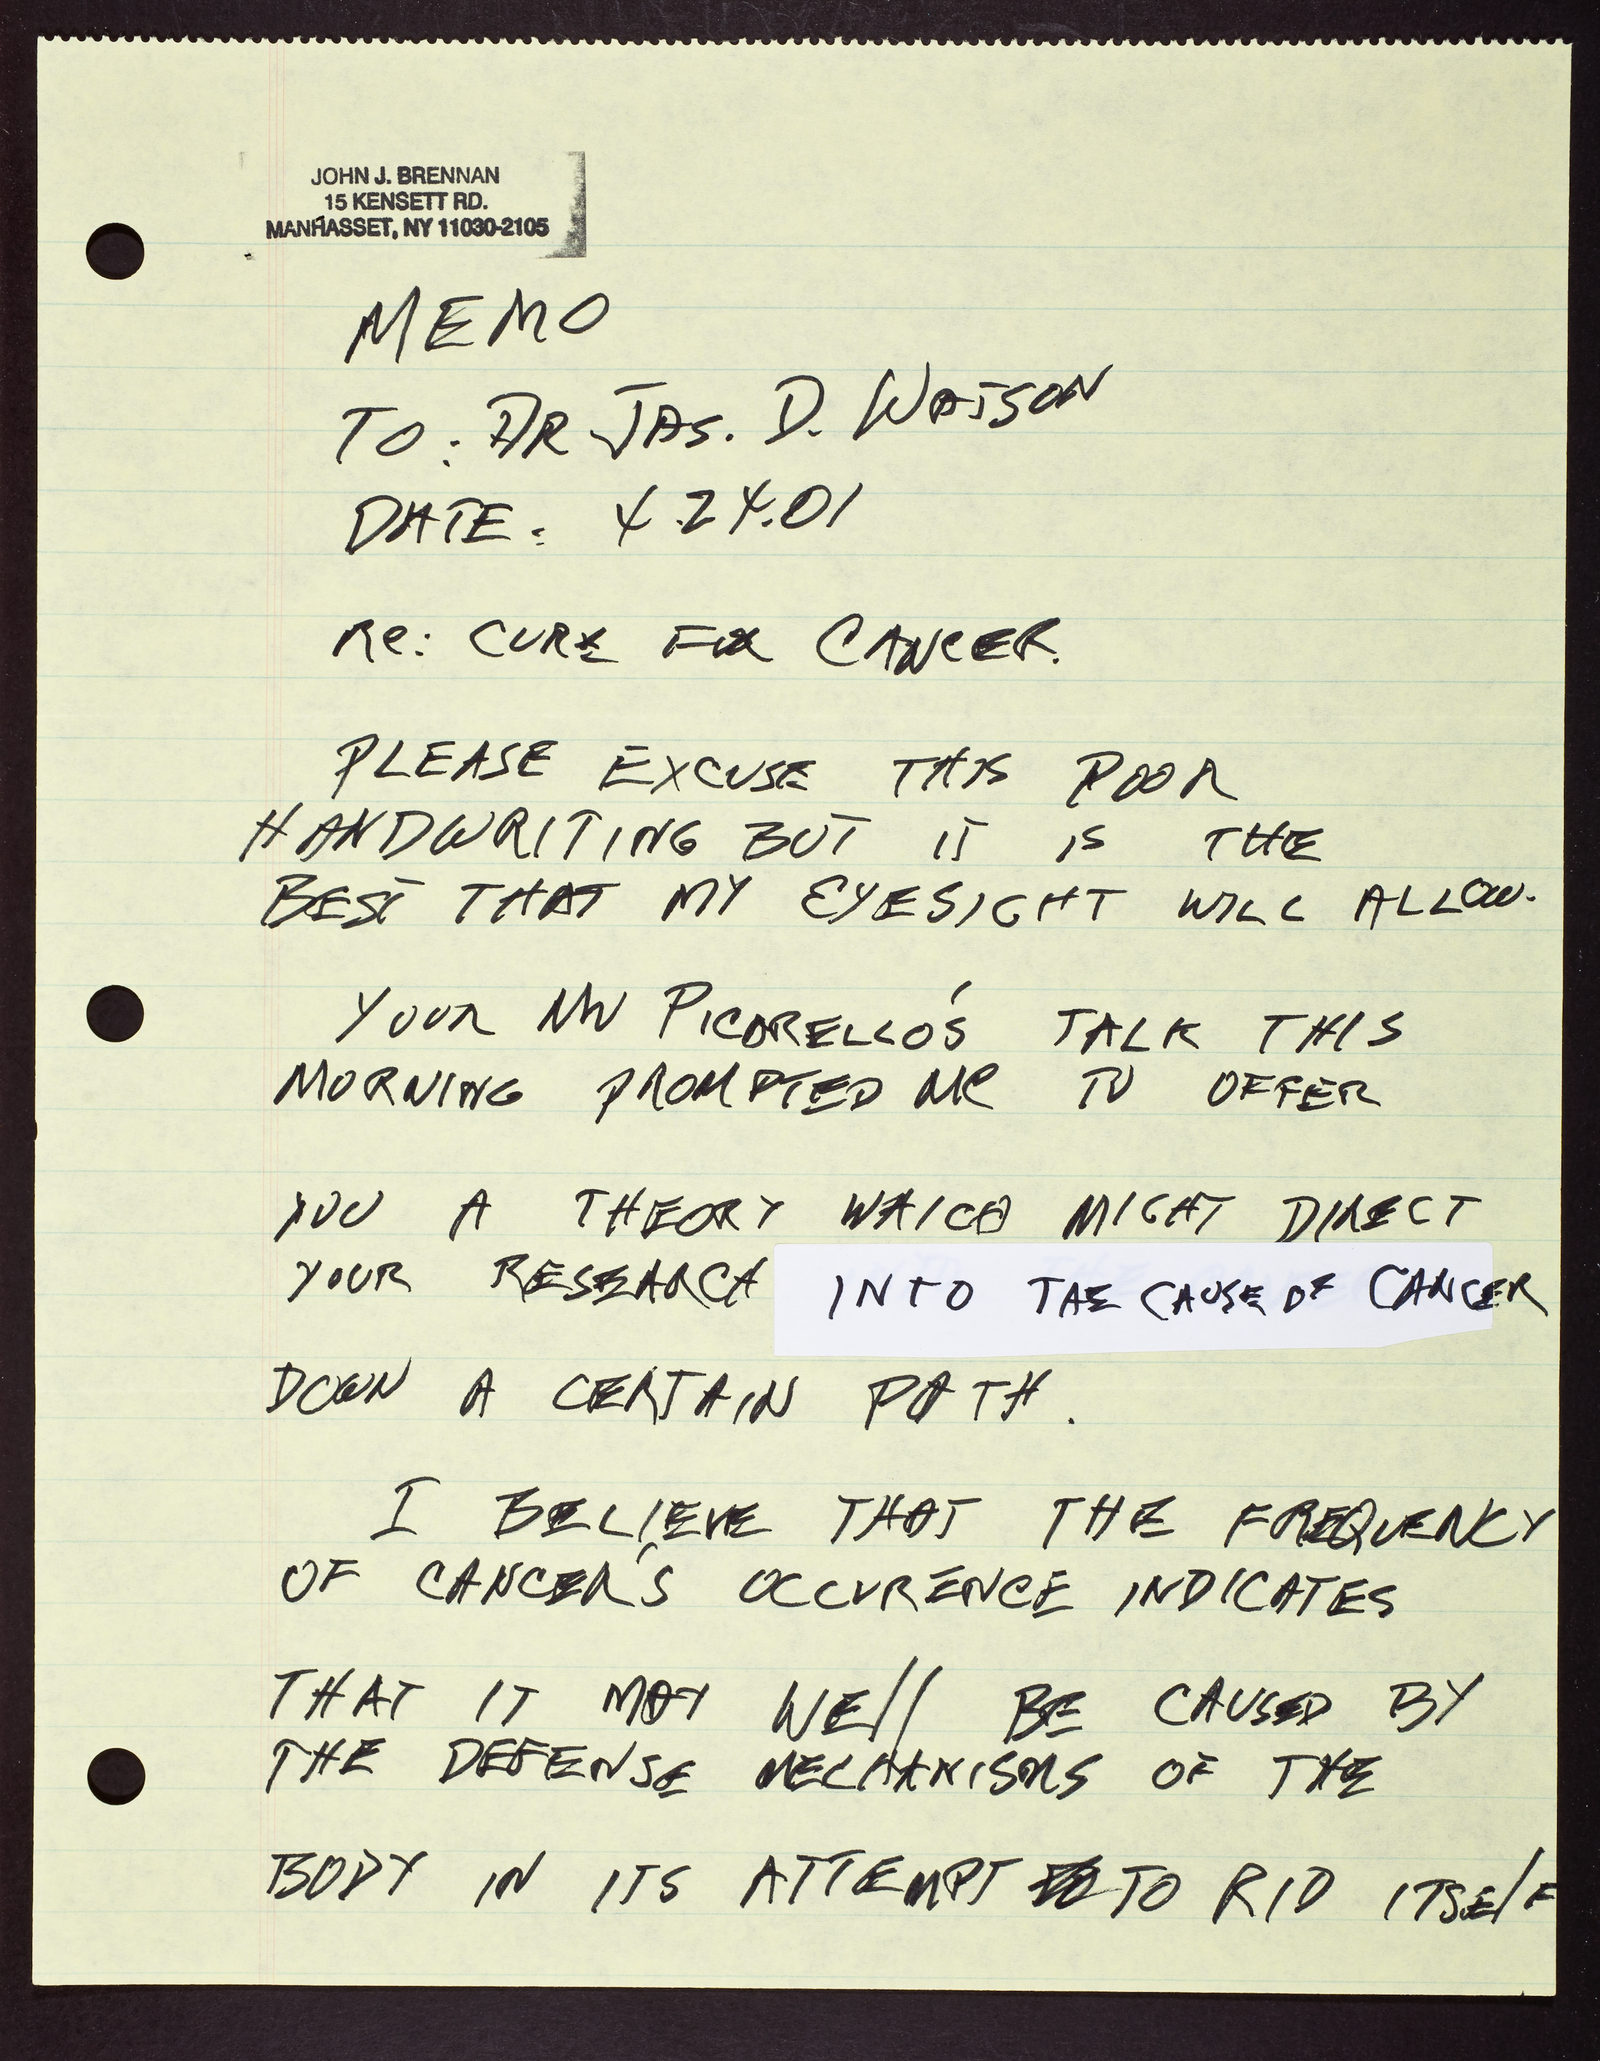 JOHN J. BRENNAN
15 KENSETT RD.
MANHASSET, NY 11030-2105
MEMO
TO: DR JAS. D. WATSON
DATE: 4.24.01
Re: CURE FOR CANCER.
PLEASE EXCUSE THIS POOR
HANDWRITING BUT IT IS THE
BEST THAT MY EYESIGHT WILL ALLOW.
YOUR MW PICORELLO'S TALK THIS
MORNING PROMPTED ME TO OFFER
YOU A THEORY WHICH MIGHT DIRECT
YOUR RESEARCH INTO THE CAUSE OF CANCER
DOWN A CERTAIN PATH.
I BELIEVE THAT THE FREQUENCY
OF CANCER'S OCCURENCE INDICATES
THAT IT MAY WEll BE CAUSED BY
THE DEFENSE MECHANISMS OF THE
BODY IN ITS ATTEMPT TO RID ITSElF